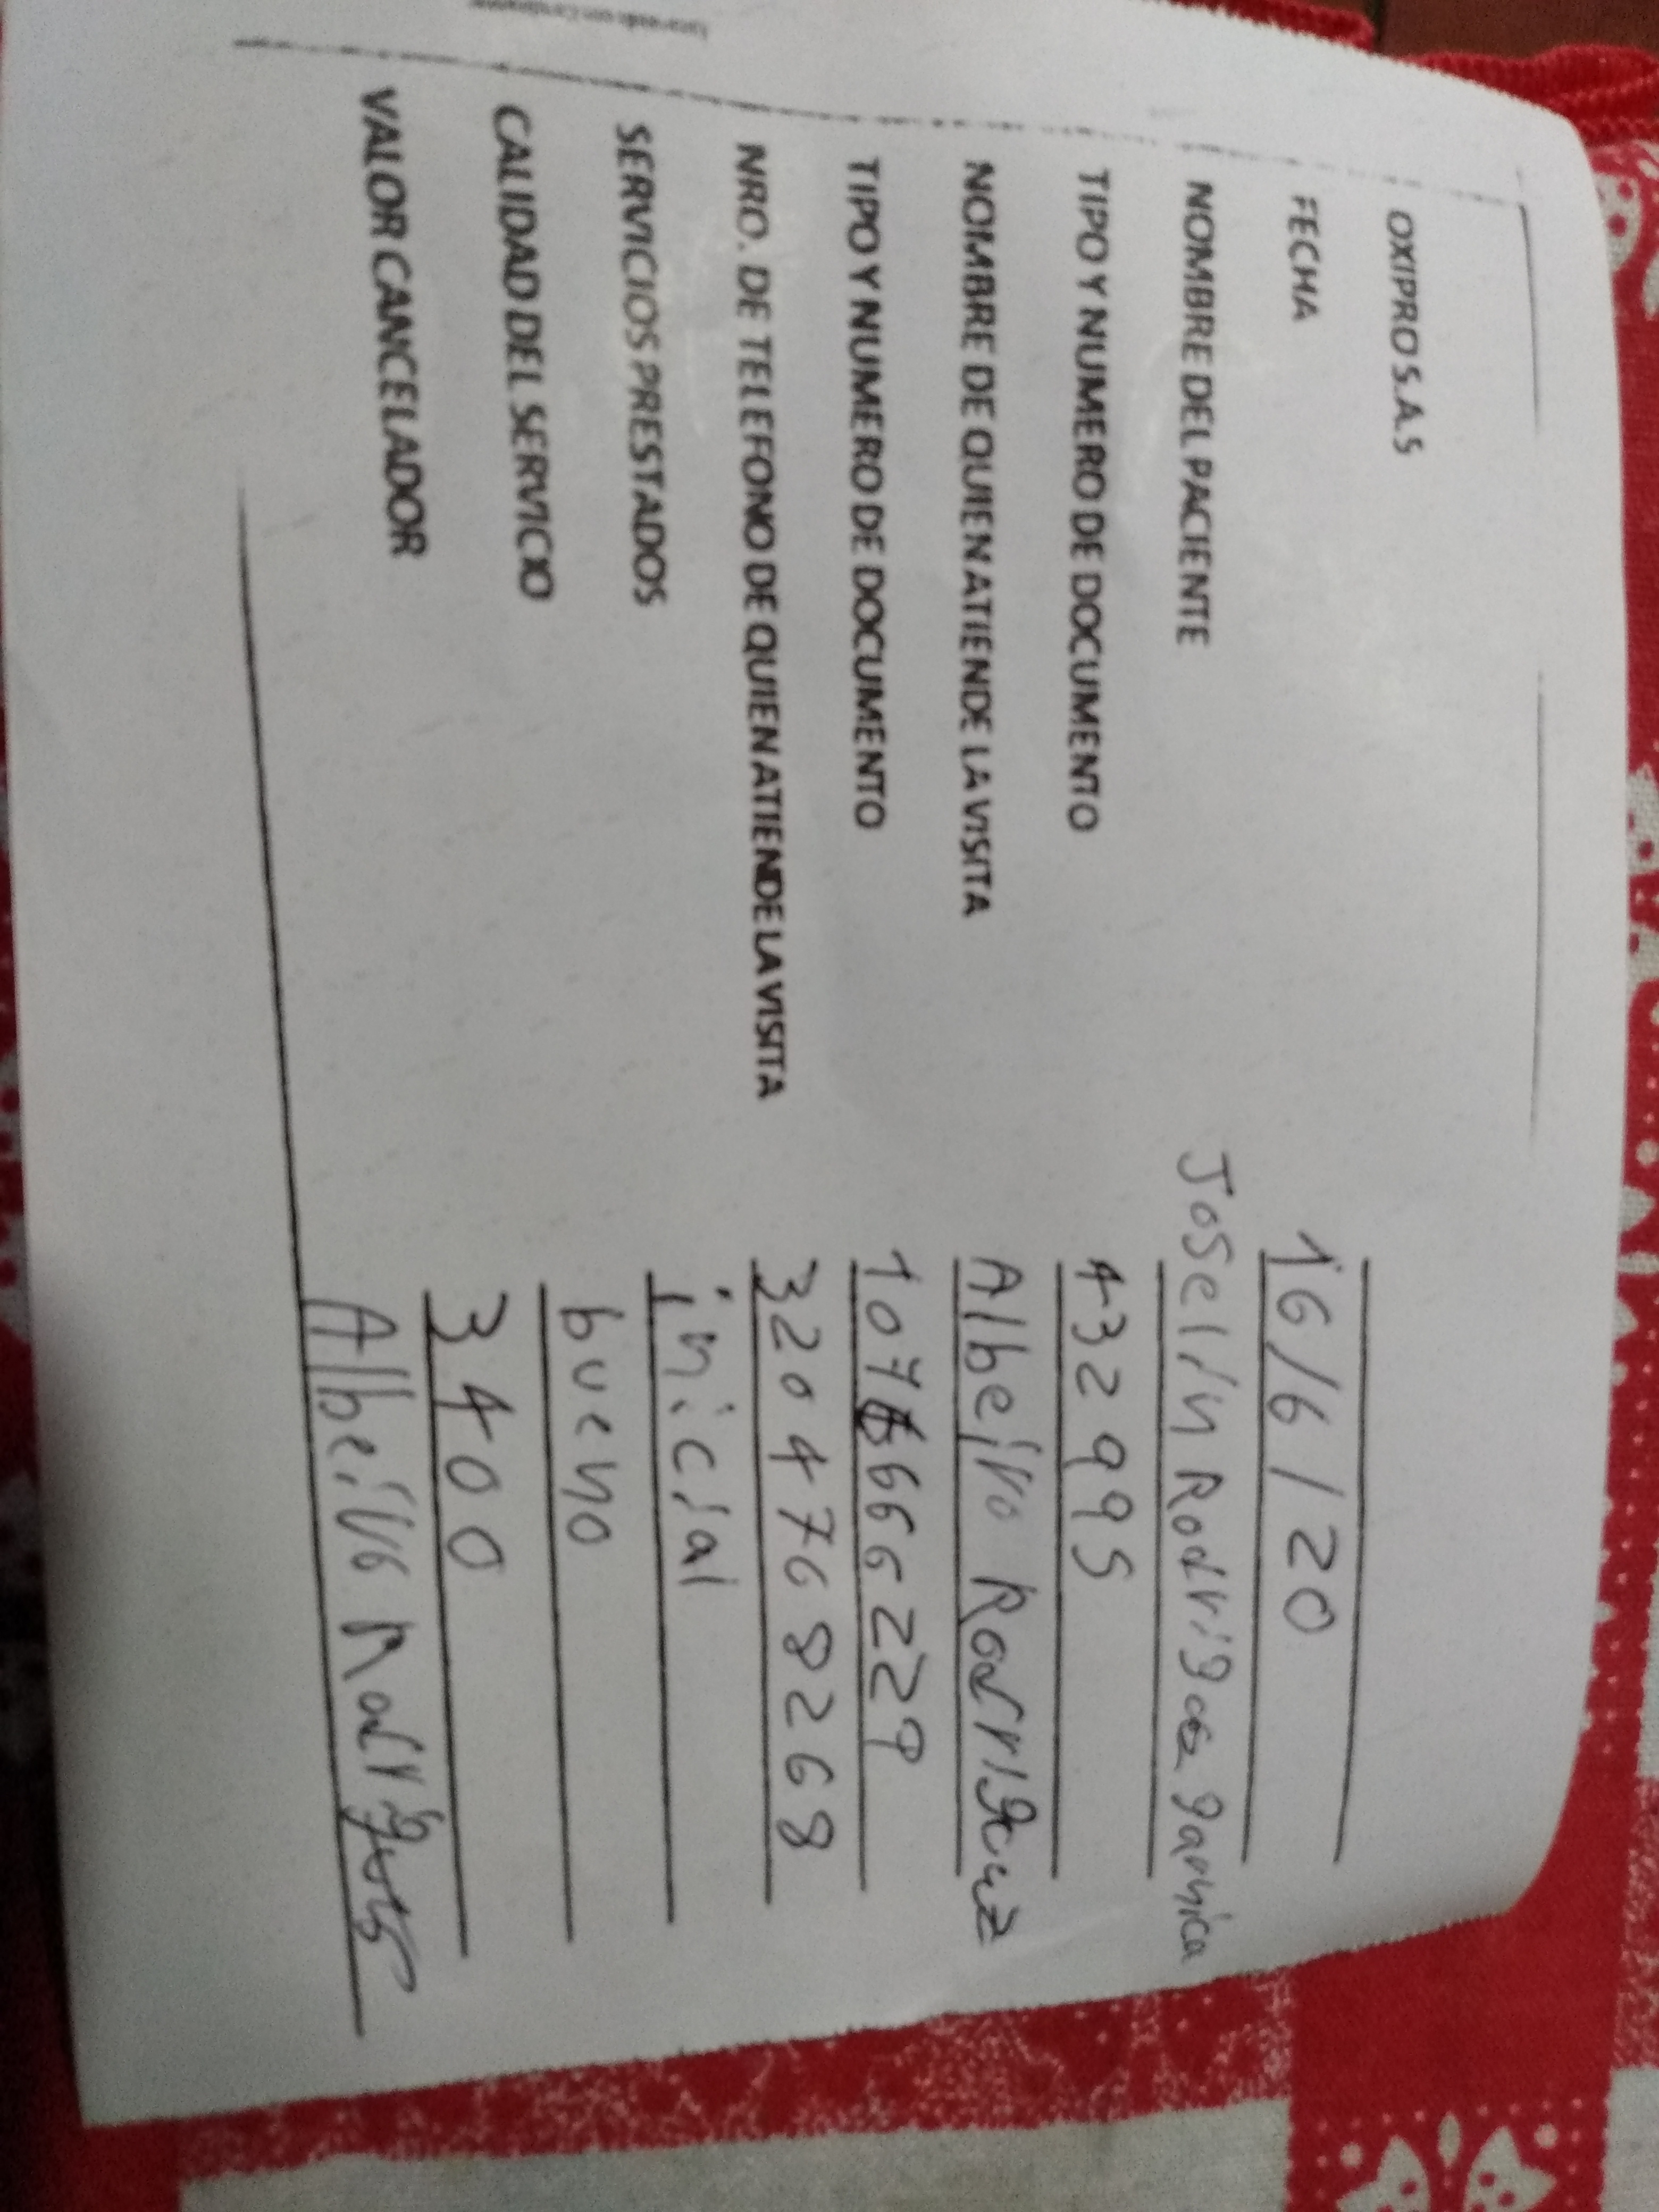 OXIPRO S.A.S
FECHA 16/6/20
NOMBRE DEL PACIENTE Joselin Rodrigues garnica
TIPO Y NUMERO DE DOCUMENTO 432995
NOMBRE DE QUIEN ATIENDE LA VISITA Albeiro Rodriguez
TIPO Y NUMERO DE DOCUMENTO 1076666229
NRO. DE TELEFONO DE QUIEN ATIENDE LA VISITA 3204768268
SERVICIOS PRESTADOS inicial
CALIDAD DEL SERVICIO bueno
VALOR CANCELADOR 3400
Albeiro